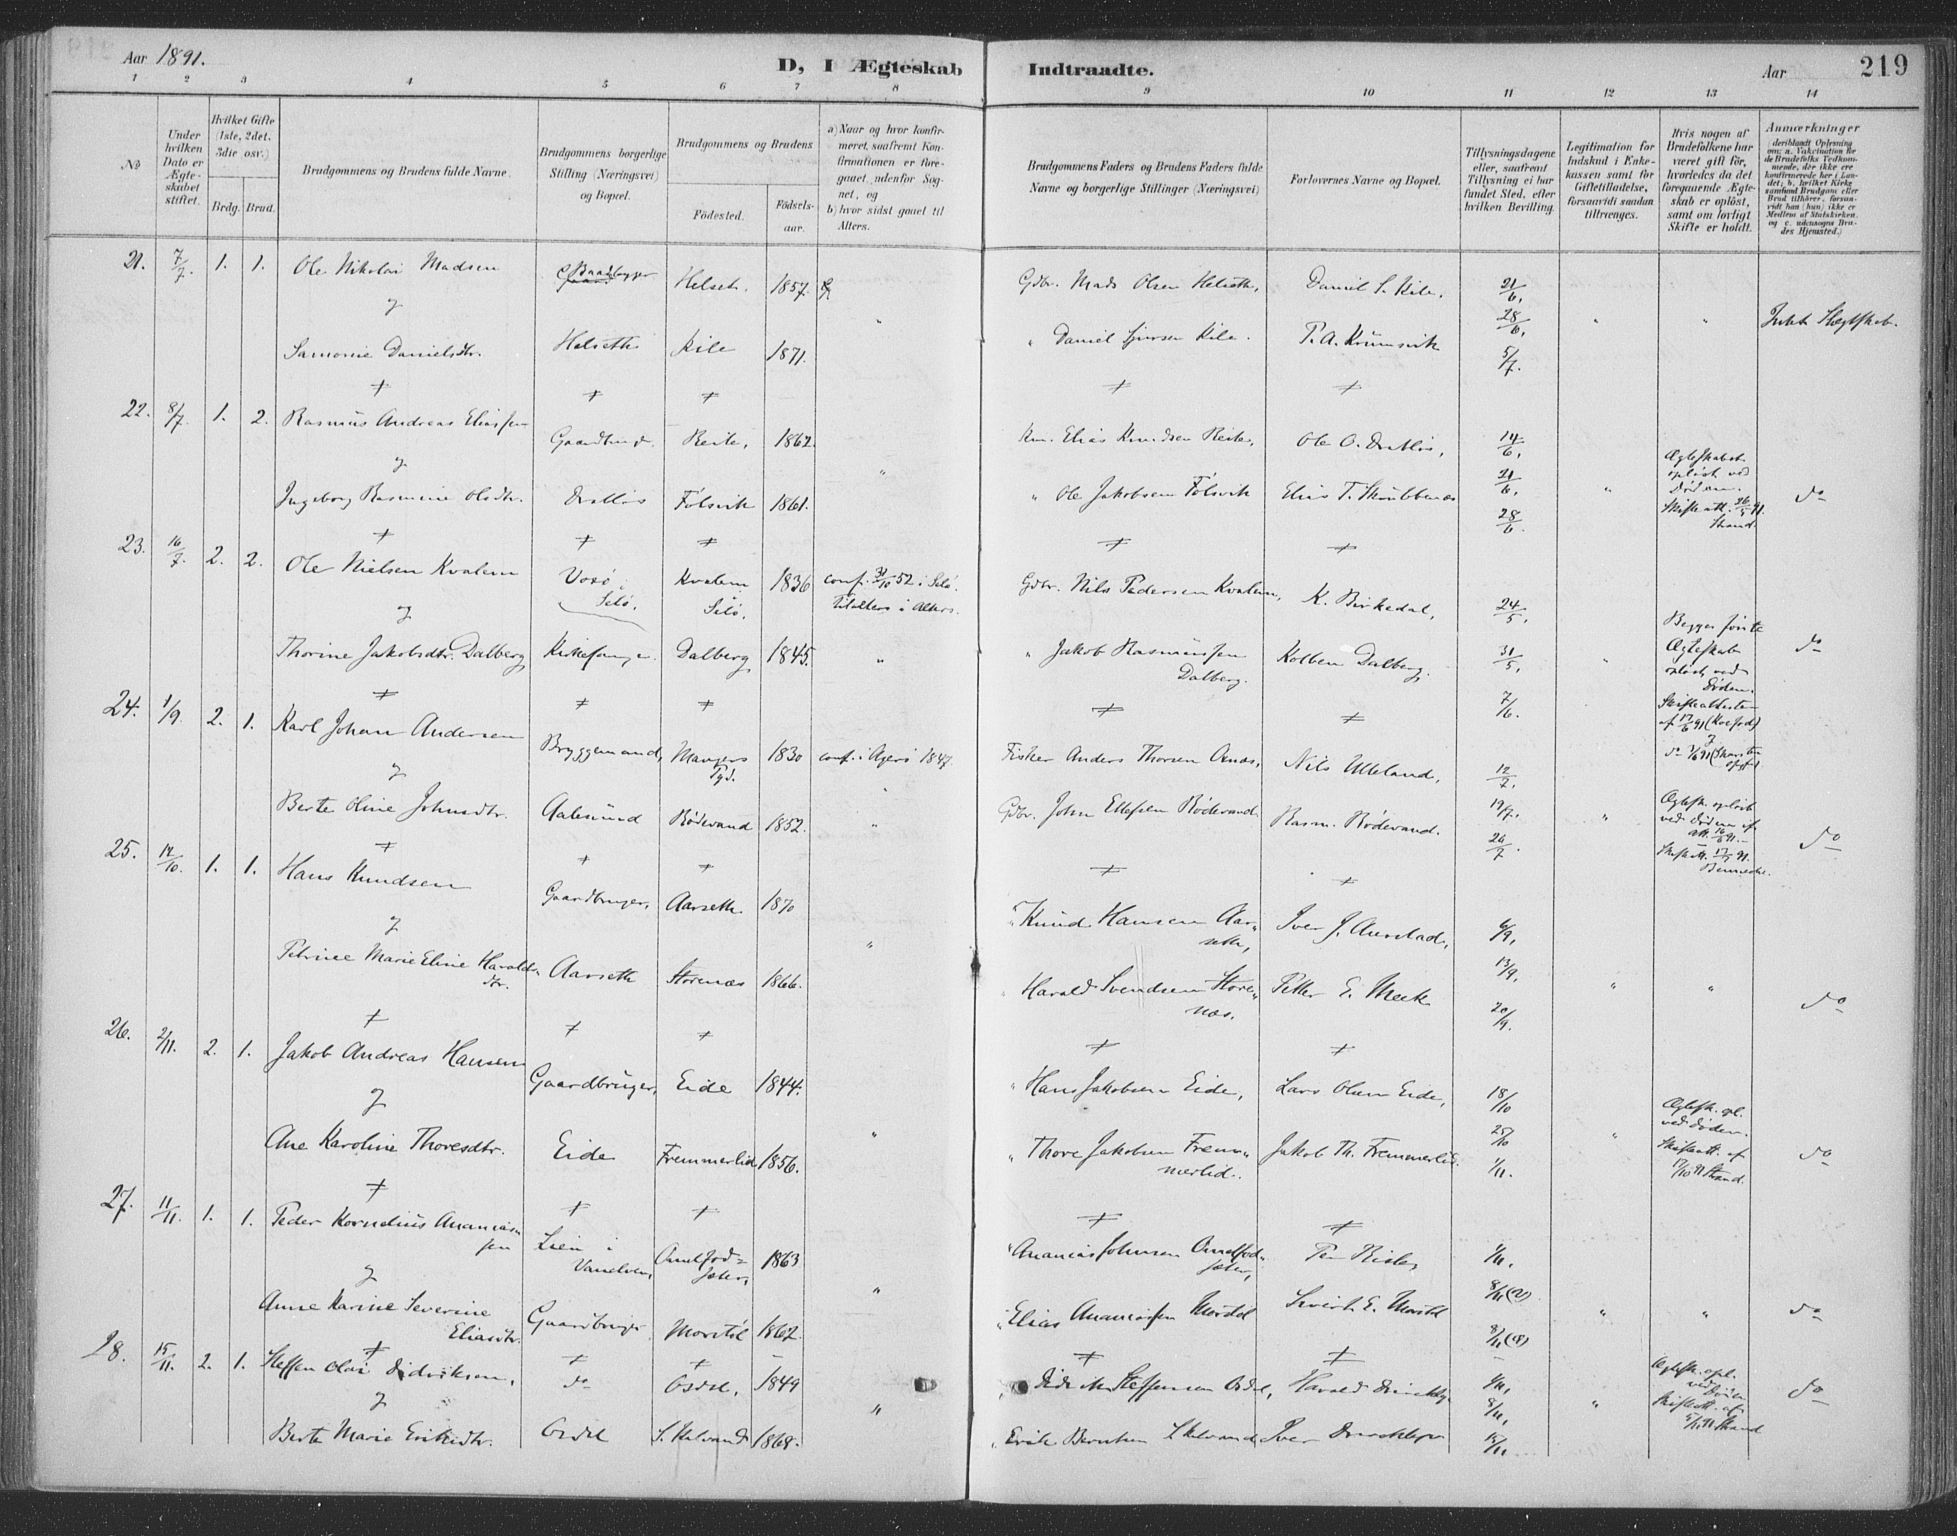 Aar 1891.
D, I Ægteskab Indtraadte.
Aar
219
1 2 3 4 5 6 7 8 9 10 11 12 13 14
No
Under hvilken Dato er Ægteskabet stiftet.
Hvilket Gifte (1ste, 2det, 3die osv.)
Brdg. Brud.
Brudgommens og Brudens fulde Navne.
Brudgommens borgerlige Stilling (Næringsvei) og Bopæl.
Brudgommens og Brudens
Fødested.
Fødselsaar.
a) Naar og hvor konfirmeret, saafremt Konfirmationen er foregaaet udenfor Sognet, og
b) hvor sidst gaaet til Alters.
Brudgommens Faders og Brudens Faders fulde Navne og borgerlige Stillinger (Næringsvei)
Forlovernes Navne og Bopæl.
Tillysningsdagene eller, saafremt Tillysning ei har fundet Sted, efter hvilken Bevilling.
Legitimation for Indskud i Enkekassen samt for Giftetilladelse, forsaavidt saadan tiltrænges.
Hvis nogen af Brudefolkene har været gift før, hvorledes da det foregaaende Ægteskab er opløst, samt om lovligt Skifte er holdt.
Anmærkninger
21. 7/7. 1. 1. Ole Nikolai Madsen Baadbygger Helset. 1857. Gdbr. Mads Olsen Helseth, Daniel S. Kile, 21/6,
g 28/6, " " Intet Slægtskab.
Samonie Danielsdtr. Helseth Kile 1871. " Daniel Sjursen Kile. P. A. Krumsvik 5/7.
22. 8/7. 1. 2. Rasmus Andreas Eliassen Gaardbrud. Reite, 1862. Elias Knudsen Reite, Ole O. 14/6,
g " 21/6, " Ægteskabet opløst ved Døden. do
Ingeborg Rasmine Olsdtr. Følsvik 1861. " Ole Jakobsen Følsvik Elias T. Skrubbenæs 28/6 Skifteatt. 26/5 91. Strand.
23. 16/7. 2. 2. Ole Nielsen Kvalem Voxø i Selø. Kvalem Selø. 1836 conf. 31/10 52 i Selø. Gdbr. Nils Pedersen Kvalem, K. Birkedal, 24/5,
g
Thorine Jakobsdtr. Dalberg Kirkesanger. Dalberg 1845. " " Jakob Rasmussen Dalberg. Kolben Dalberg. 31/5, " Begges første Ægteskab opløst ved Døden. do
7/6. Skifteattester af 17/6 91 (Koefod) g
24. 1/9. 2. 1. Karl Johan Andersen Bryggemand, Mangers Pgd. 1830 conf. i Agerø 1847 Fisker Anders Thorsen Nils Ulleland, 12/7.
g " 19/7. "
Berte Oline Johnsdtr. Aalesund Rødevand 1852. " Gdbr. John Ellefsen Rødevand. Rasm. Rødevand. 26/7. Ægtesk. opløst ved Døden do
25. 12/10. 1. 1. Hans Knudsen Gaardbruger, Aarseth 1870 " Knud Hansen Aarseth, Iver J. Aurstad, 6/9,
g " 13/9,
Petrine Marie Eline Haraldsdtr. Aarseth Storenæs 1866. Harald Svendsen Storenæs. Petter E. Meek 20/9. " " do
26. 2/11. 2. 1. Jakob Andreas Hansen Gaardbruger, Eide 1844. " Hans Jakobsen Eide, Lars Olsen Eide, 18/10
g " 25/10 " Ægtesk. opl. ved Døden.
Ane Karoline Thoresdtr. Eide Fremmerlid 1856. " Thore Jakobsen Fremmerlid. Jakob Th. Fremmerlid. 1/11. Skifteatt. af 17/10 91 Strand. do
27. 11/11. 1. 1. Peder Kornelius Ananiassen Lien i Vanelven, 1863 " Ananias Johnsen Per 1/11,
g " 8/11 (2) " " do
Anne Karine Severine Eliasdtr. Gaardbruger Morstøl 1862. " Elias Ananiassen Morstøl Sivert E. Morstøl 8/11
28. 15/11. 2. 1. Steffen Olai Didriksen, do Osdel, 1849 " Didrik Steffensen Osdel, Harald 1/11, Ægtesk. opl. ved Døden do
g " 8/11, " Skifteatt. af Strand
Berte Marie Eriksdtr. Osdel 1868. " Erik Berntsen Iver 15/11